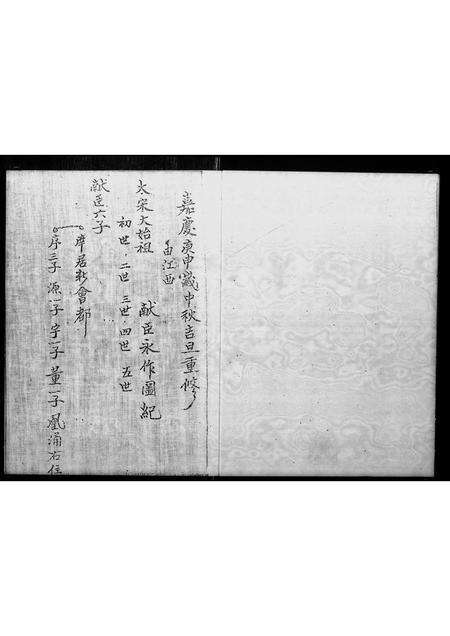 嘉慶庚申歲中秋吉旦重修
由江西
太宋大始祖 献臣永作圖紀
初世 二世 三世 四世 五世
献臣六子
岸居新會都
序三子 源一子 宇子 董二子 凰涌右住